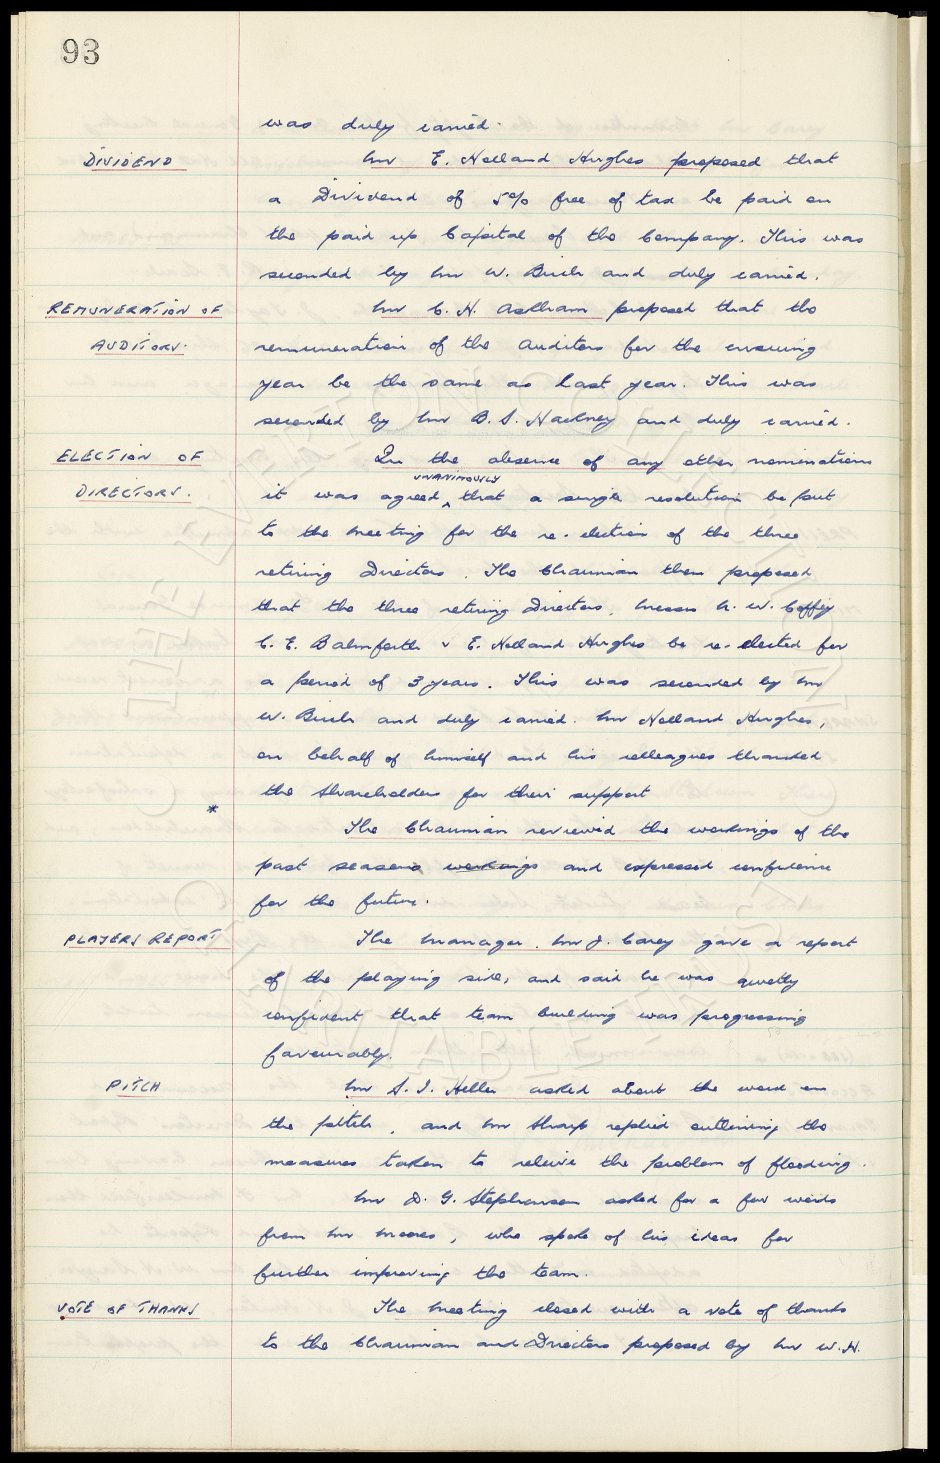 93
was duly carried.
DIVIDEND
Mr E. Holland Hughes proposed that
a Dividend of 5% free of tax be paid on
the paid up Capital of the Company. This was
seconded by Mr W. Birch and duly carried.
REMUNERATION OF
Mr C. H. Askham proposed that the
AUDITORS.
remuneration of the auditors for the ensuing
year be the same as last year. This was
seconded by Mr B. S. Hackney and duly carried.
ELECTION OF
In the absence of any other nominations
UNANIMOUSLY
DIRECTORS.
it was agreed ^ that a single resolution be put
to the meeting for the re-election of the three
retiring Directors. The Chairman then proposed
that the three retiring Directors, Messrs N. W. Coffey
C. E. Balmforth & E. Holland Hughes be re-elected for
a period of 3 years. This was seconded by Mr
W. Birch and duly carried. Mr Holland Hughes,
on behalf of himself and his colleagues thanked
the Shareholders for their support
*
The Chairman reviewed the workings of the
past seasons workings and expressed confidence
for the future.
PLAYERS REPORT
The Manager, Mr J. Carey gave a report
of the playing side, and said he was quietly
confident that team building was progressing
favourably.
PITCH
Mr S. I. Heller asked about the work on
the pitch, and Mr Sharp replied outlining the
measures taken to releive the problem of flooding.
Mr D. G. Stephenson asked for a few words
from Mr Moores, who spoke of his ideas for
further improving the team.
VOTE OF THANKS
The meeting closed with a vote of thanks
to the Chairman and Directors proposed by Mr W. H.